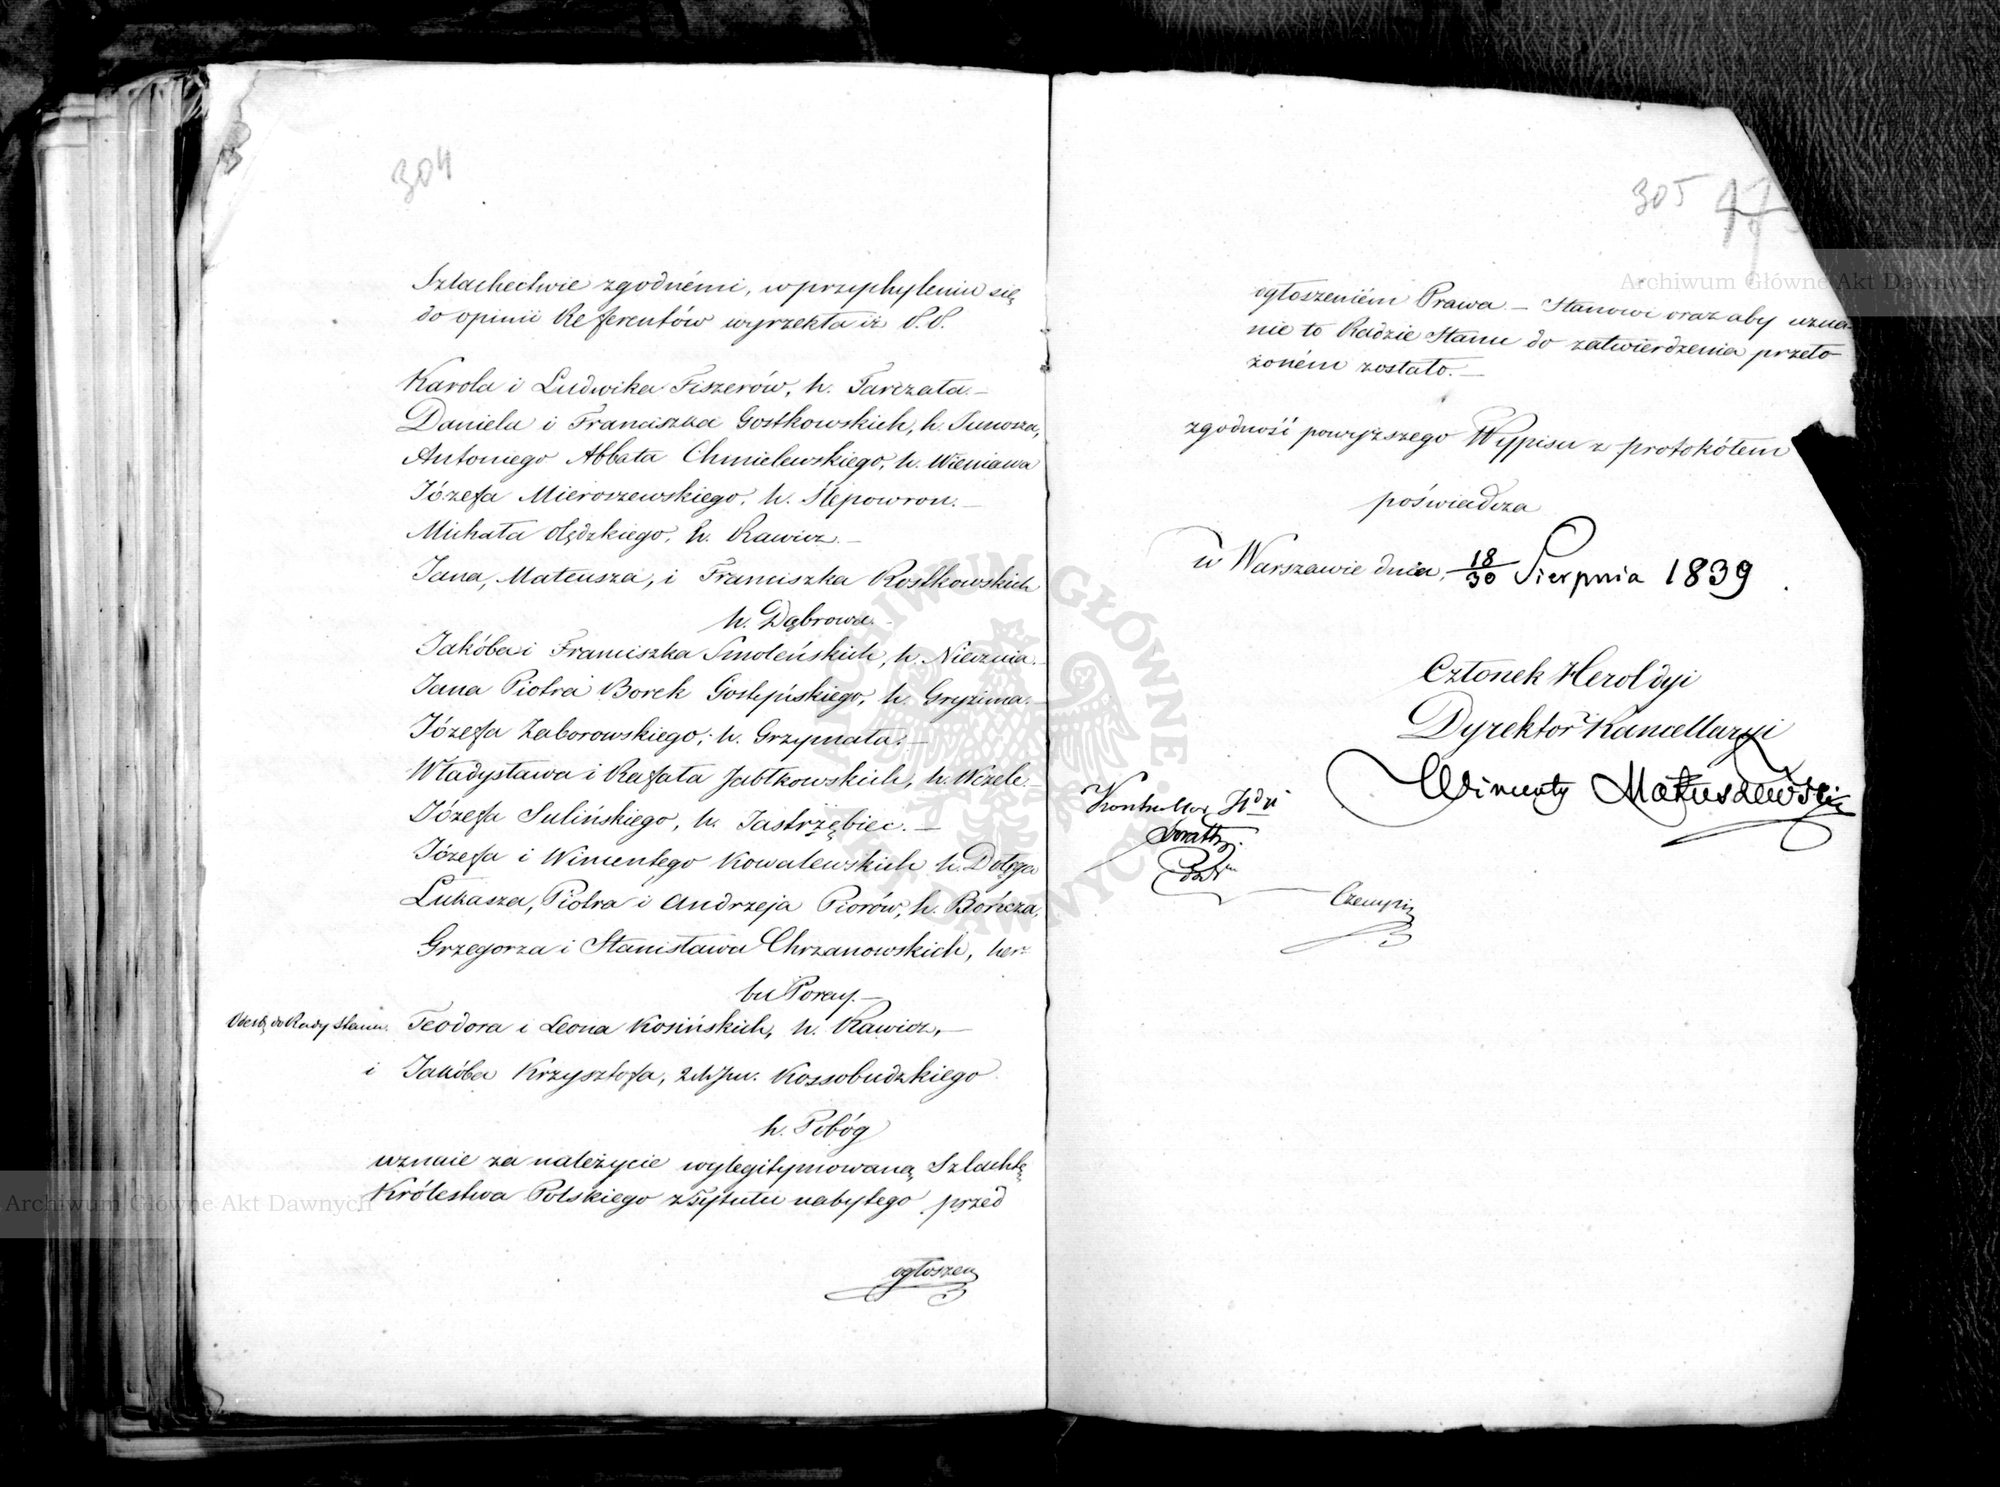 304
Szlachectwie zgodnémi, w przychyleniu się
do opinii Referentów wyrzekła iż P.P.
Karola i Ludwika Fiszerów, h. Tarczała.—
Daniela i Franciszka Gostkowskich, h. Junosza,
Antoniego Abbata Chmielewskiego, h. Wieniawa
Józefa Mieroszewskiego, h. Ślepowron.—
Michała Olędzkiego, h. Rawicz.—
Jana, Mateusza, i Franciszka Rostkowskich
h. Dąbrowa.—
Jakóba i Franciszka Smoleńskich, h. Nieczuia.—
Jana Piotra Borek Gostyńskiego, h. Gryzima.—
Józefa Zaborowskiego, h. Grzymała.—
Władysława i Rafała Jabłkowskich, h. Wczele.—
Józefa Sulińskiego, h. Jastrzębiec.—
Józefa i Wincentego Kowalewskich h. Dołęga
Łukasza, Piotra i Andrzeja Piorów, h. Bończa,
Grzegorza i Stanisława Chrzanowskich, her-
bu Poray.—
Odesłę do Rady Stanu. Teodora i Leona Kosińskich, h. Rawicz,—
i Jakóba Krzysztofa, Kossobudzkiego
h. Pobóg
uznaie za należycie wylegitymowaną Szlachtę
Królestwa Polskiego z Tytułu nabytego przed
ogłoszen
305 17
ogłoszeniém Prawa.— Stanowi oraz aby uzna-
nie to Radzie Stanu do zatwierdzenia przeło-
żoném zostało.—
zgodność powyższego Wypisu z protokółem
poświadcza
w Warszawie dnia 18/30 Sierpnia 1839.
Członek Heroldyi
Dyrektor Kancellaryi
Wincenty Matuszewski
Kontroller
Czempin
Archiwum Główne Akt Dawnych
Archiwum Główne Akt Dawnych
ARCHIWUM GŁÓWNE AKT DAWNYCH